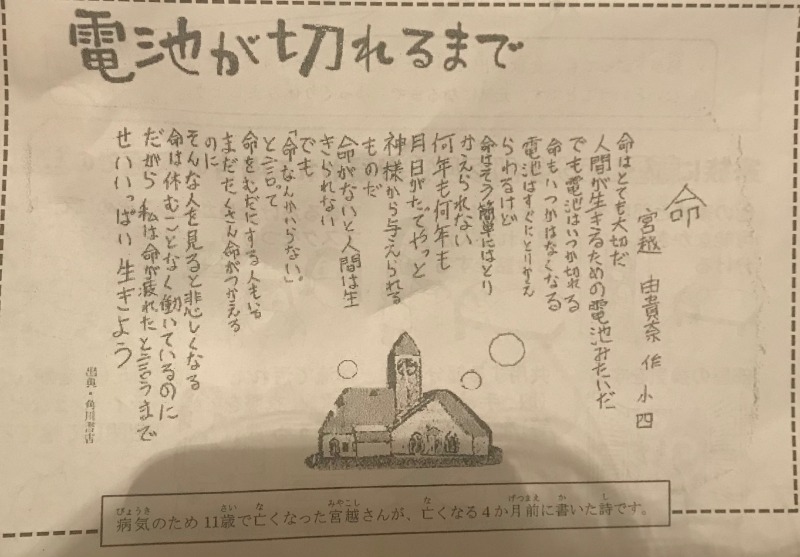 電池が切れるまで
命
宮越 由貴奈 作 小四
命はとても大切だ
人間が生きるための電池みたいだ
でも電池はいつか切れる
命もいつかはなくなる
電池はすぐにとりかえ
られるけど
命はそう簡単にはとり
かえられない
何年も何年も
月日がたってやっと
神様から与えられる
ものだ
命がないと人間は生
きられない
でも
「命なんかいらない。」
と言って
命をむだにする人もいる
まだたくさん命がつかえる
のに
そんな人を見ると悲しくなる
命は休むことなく働いているのに
だから 私は命が疲れたと言うまで
せいいっぱい生きよう
出典・角川書店
病気のため11歳で亡くなった宮越さんが、亡くなる4か月前に書いた詩です。